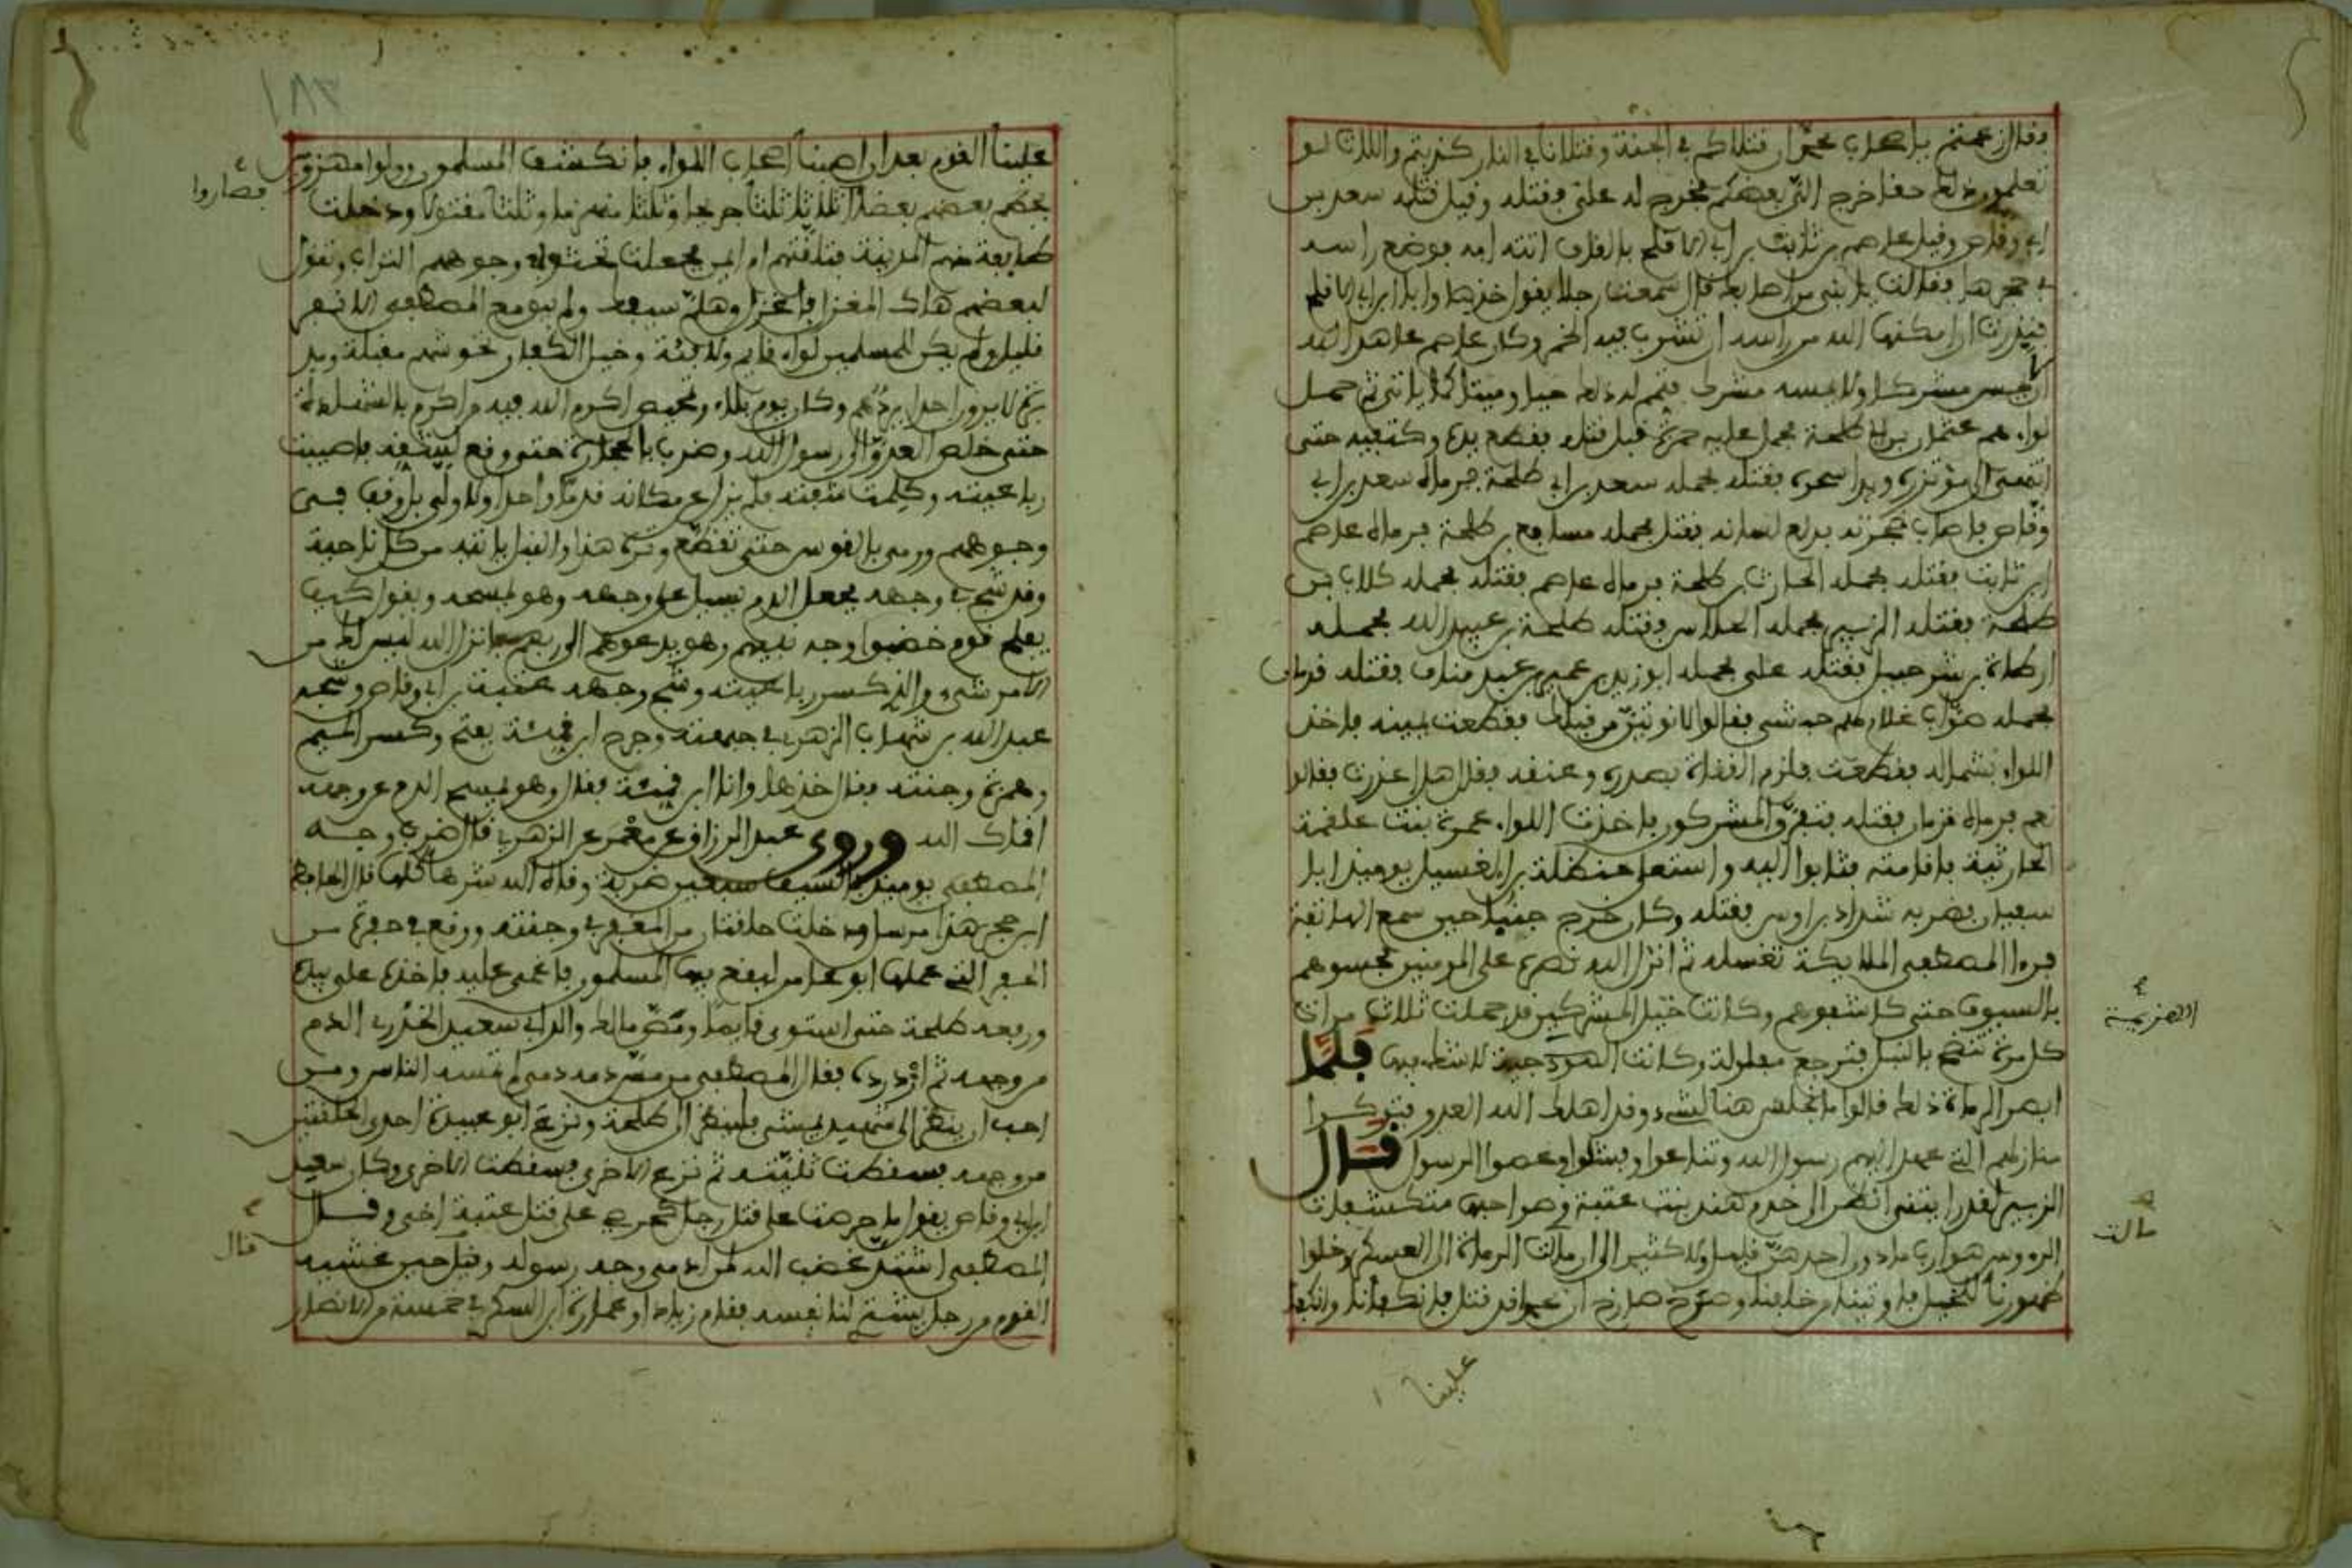 وقال زعمتم يا أصحاب محمد أن قتلاكم في الجنة وقتلانا في النار كذبتم واللات لو
تعلمون ذلك حقا خرج إلي بعضكم فخرج له علي فقتله وقيل قتله سعد بن
أبي وقاص وقيل عاصم بن ثابت بن أبي الأقلح بالقاف أتته أمه فوضع رأسه
في حجرها فقالت يا بني من أصابك قال سمعت رجلا يقول خذها وأنا ابن أبي الأقلح
فنذرت إن أمكنها الله من رأسه أن تشرب فيه الخمر وكان عاصم عاهد الله
لا يمس مشركا ولا يمسه مشرك فتم له ذلك حيا وميتا كما يأتي ثم حمل
لواءهم عثمان بن أبي طلحة فحمل عليه حمزة قبل قتله فقطع يده وكتفيه حتى
انتهى إلى مؤتزره وبدا سحره فقتله فحمله سعد بن أبي طلحة فرماه سعد بن أبي
وقاص فأصاب حنجرته فدلع لسانه فقتل فحمله مسافع بن طلحة فرماه عاصم
ابن ثابت فقتله فحمله الحارث بن طلحة فرماه عاصم فقتله فحمله كلاب بن
طلحة فقتله الزبير فحمله الجلاس فقتله طلحة بن عبيد الله فحمله
أرطاة بن شرحبيل فقتله علي فحمله أبو زيد بن عمير بن عبد مناف فقتله قزمان
فحمله صواب غلام لهم حبشي فقالوا لا نوتين من قبلك فقطعت يمينه فأخذ
اللواء بشماله فقطعت فلزم القناة بصدره وعنقه فقال هل أعذرت فقالوا
نعم فرماه قزمان فقتله فتفرق المشركون فأخذت اللواء عمرة بنت علقمة
الحارثية فأقامته فثابوا إليه واستعلى حنظلة بن الغسيل يومئذ أبا
سفيان فضربه شداد بن أوس فقتله وكان خرج جنبا حين سمع الهائعة
فرءا المصطفى الملايكة تغسله ثم أنزل الله نصره على المومنين فحسوهم
بالسيوف حتى كاشفوهم وكانت خيل المشركين قد حملت ثلاث مرات
كل مرة تنضح بالنبل فترجع مفلولة وكانت الهزيمة لا شك فيها فلما
الهزيمة
أبصر الرماة ذلك قالوا ما نجلس هنا لشيء وقد أهلك الله العدو فتركوا
منازلهم التي عهد إليهم رسول الله وتنازعوا وفشلوا وعصوا الرسول قال
الزبير لقد رأيتني أنظر إلى خدم هند بنت عتبة وصواحبها متكشفات
الرووس هوارب ما دون أخذهن قليل ولا كثير إلى أن مالت الرماة إلى العسكر وخلوا
مالت
ظهورنا للخيل فأوتينا من خلفنا وصرخ صارخ أن محمدا قد قتل فانكفأنا وانكفأ
علينا
علينا القوم بعد أن أصبنا أصحاب اللواء فانكشف المسلمون وولوا مهزومين
فصاروا
يحطم بعضهم بعضا أثلاثا ثلثا جريحا وثلثا منهزما وثلثا مقتولا ودخلت
طايفة منهم المدينة فتلقتهم أم أيمن فجعلت تحثو في وجوههم التراب وتقول
لبعضهم هاك المغزل فاغزل وهلم سيفك ولم يبق مع المصطفى إلا نفر
قليل ولم يكن للمسلمين لواء قايم ولا فئة وخيل الكفار تحوشهم مقبلة ومد
برة لا يرون أحدا يردهم وكان يوم بلاء وتمحيص أكرم الله فيه من أكرم بالشهادة
حتى خلص العدو إلى رسول الله وضرب بالحجارة حتى وقع لشقه فأصيبت
رباعيته وكلمت شفته فلم يزل عن مكانه قدما واحدا ولا ولى بل وقف في
وجوههم ورمى بالقوس حتى تقطع وتره هذا والنبل يأتيه من كل ناحية
وقد شج في وجهه فجعل الدم يسيل على وجهه وهو يمسحه ويقول كيف
يفلح قوم خضبوا وجه نبيهم وهو يدعوهم إلى ربهم فأنزل الله ليس لك من
الأمر شيء والذي كسر رباعيته وشج وجهه عتبة بن أبي وقاص وشجه
عبد الله بن شهاب الزهري في جبهته وجرح ابن قمئة بفتح وكسر الميم
وهمزة وجنته فقال خذها وأنا ابن قمئة فقال وهو يمسح الدم عن وجهه
أقمأك الله وروى عبد الرزاق عن معمر عن الزهري قال ضرب وجه
المصطفى يومئذ بالسيف سبعين ضربة وقاه الله شرها كلها قال الحافظ
ابن حجر هذا مرسل ودخلت حلقتان من المغفر في وجنته ووقع في حفرة من
الحفر التي عملها أبو عامر ليقع فيها المسلمون فأغمي عليه فأخذ علي بيده
ورفعه طلحة حتى استوى قايما ومص مالك والد أبي سعيد الخدري الدم
من وجهه ثم ازدرده فقال المصطفى من مس دمه دمي لم تمسه النار ومن
أحب أن ينظر إلى شهيد يمشي فلينظر إلى طلحة ونزع أبو عبيدة إحدى الحلقتين
من وجهه فسقطت ثنيته ثم نزع الأخرى فسقطت الأخرى وكان سعد
ابن أبي وقاص يقول ما حرصت على قتل رجل كحرصي على قتل عتبة أخي وقال
قال
المصطفى اشتد غضب الله على من أدمى وجه رسوله وقيل حين غشيه
القوم من رجل يشتري لنا نفسه فقام زياد أو عمارة بن السكن في خمسة من الأنصار